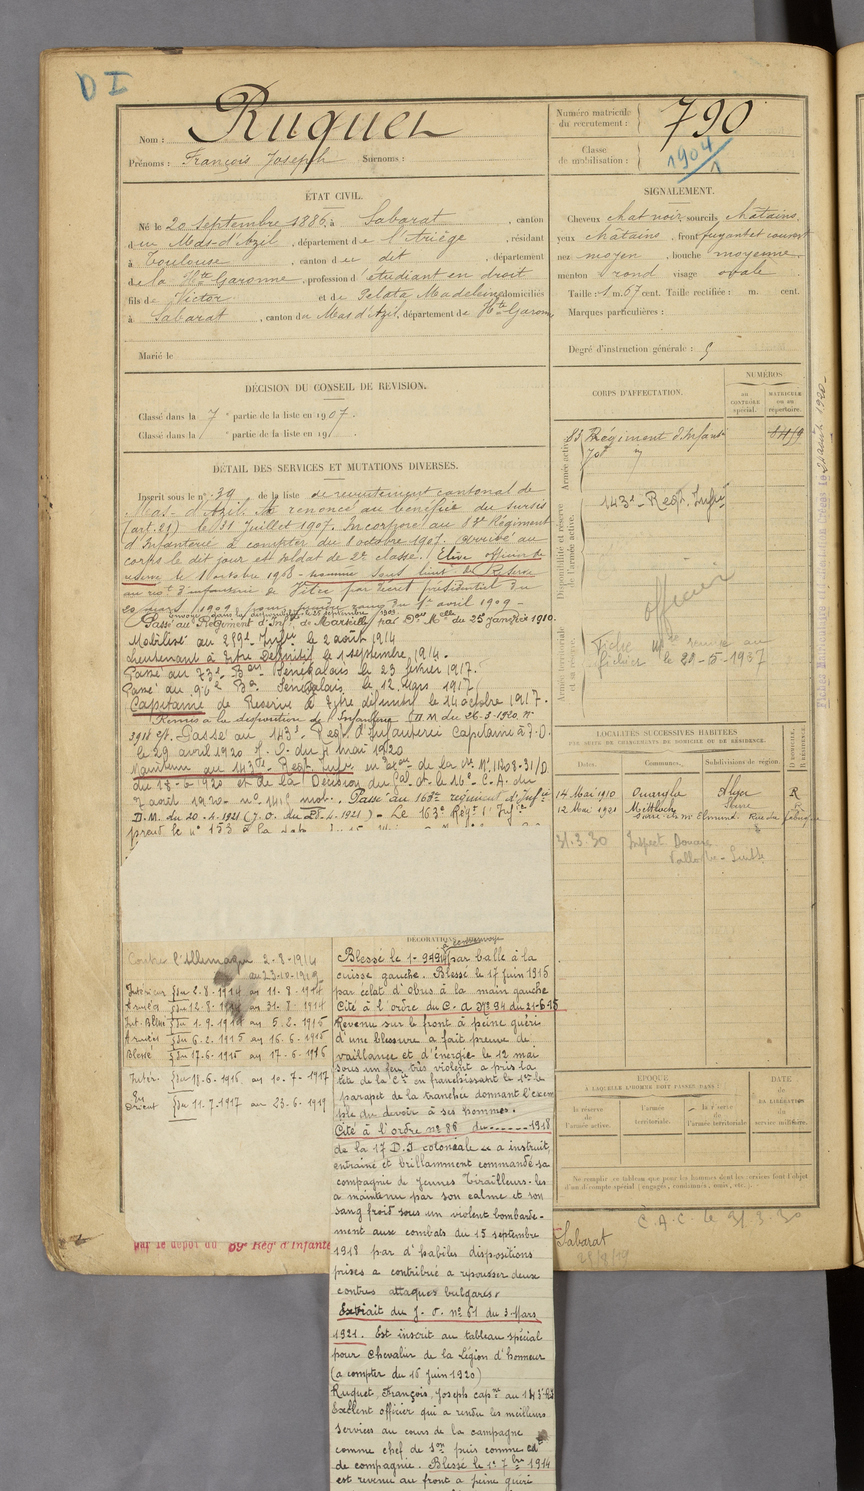 D I
Nom : Ruquet
Prénoms : François Joseph Surnoms :
Numéro matricule
du recrutement : 790
Classe
de mobilisation : 1904/1
ÉTAT CIVIL.
Né le 20 septembre 1886, à Sabarat , canton
du Mas-d'Azil , département de l'Ariège , résidant
à Toulouse , canton du dit , département
de la Hte Garonne , profession d'étudiant en droit
fils de Victor et de Pelata Madeleine domiciliés
à Sabarat , canton du Mas d'Azil, département de Hte Garonne
Marié le
SIGNALEMENT.
Cheveux chat noir sourcils châtains,
yeux châtains , front fuyant et couvert
nez moyen , bouche moyenne,
menton rond visage ovale
Taille : 1 m. 67 cent. Taille rectifiée : m. cent.
Marques particulières :
Degré d'instruction générale : 5
DÉCISION DU CONSEIL DE REVISION.
Classé dans la 7e partie de la liste en 1907.
Classé dans la e partie de la liste en 19 .
CORPS D'AFFECTATION.
NUMÉROS
au
contrôle
spécial.
matricule
ou au
répertoire.
Armée active.
83 Régiment d'Infant
143e Regt Infie
Disponibilité et réserve
de l'armée active.
officier
Fiche remise au
fichier le 21-5-1937
Armée territoriale
et sa réserve.
DÉTAIL DES SERVICES ET MUTATIONS DIVERSES.
Inscrit sous le n° 39 de la liste de recrutement cantonal de
Mas-d'Azil. A renoncé au bénéfice du sursis
(art. 21) le 31 Juillet 1907. Incorporé au 83e Régiment
d'Infanterie à compter du 8 octobre 1907. Arrivé au
corps le dit jour et soldat de 2e classe. Elève officier de
réserve le 1 octobre 1908 - nommé sous lieut de Réserve
au régt d'infanterie de par décret présidentiel du
20 mars 1909 pour prendre rang du 1er avril 1909 -
Passé au Régiment d'Inf. de Marseille par Don Mlle du 25 janvier 1910.
Mobilisé au 259e Infie le 2 août 1914
Lieutenant à titre définitif le 1 septembre 1914 -
Passé au 73e Bon Sénégalais le 23 février 1917.
Passé au 96e Bon Sénégalais le 12 mars 1917
Capitaine de Réserve à titre définitif le 14 octobre 1917.
Remis à la disposition de l'Infanterie (D M du 26-3-1920 n°
3918 c/s. Passé au 143e Regt d'Infanterie Capitaine à T.D.
le 29 avril 1920 J. O. du 7 mai 1920
Maintenu au 143e Regt Infie en de la Ve Mlle 1208-31/D
du 18-6-1920 et de la Décision du Gal Ct le 16e C.A. du
7 août 1920 - n° 1418 mob. Passé au 163e régiment d'Infie
D.M. du 20-4-1921 (J.O. du 28-4-1921) - Le 163e Régt d'Infie
prend le n° 153 à la date
LOCALITÉS SUCCESSIVES HABITÉES
PAR SUITE DE CHANGEMENTS DE DOMICILE OU DE RÉSIDENCE.
Dates. Communes. Subdivisions de région. D. DOMICILE. R. RÉSIDENCE.
14 Mai 1910 Ouargla Alger R
12 Mai 1921 Mettlach Sarre R
31-3-30 Inspect Douane
Vallorbe - Suisse
Contre l'Allemagne 2-8-1914
au 23-10-1919
Intérieur du 2-8-1914 au 11-8-1914
Armées du 12-8-1914 au 31-8-1914
Int. Blessé du 1-9-1914 au 5-2-1915
Armées du 6-2-1915 au 16-6-1915
Blessé du 17-6-1915 au 17-6-1916
Intér. du 18-6-1916 au 10-7-1917
En
Orient du 11-7-1917 au 23-6-1919
DÉCORATIONS
Blessé le 1-9-1914 par balle à la
cuisse gauche. Blessé le 17 juin 1915
par éclat d'obus à la main gauche
Cité à l'ordre du C.A n° 94 du 21-6-15
Revenu sur le front à peine guéri
d'une blessure a fait preuve de
vaillance et d'énergie le 12 mai
sous un feu très violent a pris la
tête de la Cie en franchissant le 1er le
parapet de la tranchée donnant l'exem
ple du devoir à ses hommes.
Cité à l'ordre n° 88 du ------- 1918
de la 17 D.I coloniale a instruit,
entrainé et brillamment commandé sa
compagnie de jeunes Tirailleurs - les
a maintenu par son calme et son
sang froid sous un violent bombarde-
ment aux combats du 15 septembre
1918 par d'habiles dispositions
prises a contribué a repousser deux
contres attaques bulgares.
Extrait du J. O. n° 61 du 3 Mars
1921. Est inscrit au tableau spécial
pour Chevalier de la Légion d'honneur
(a compter du 16 juin 1920)
Ruquet, François, Joseph capne au 143e
Exellent officier qui a rendu les meilleurs
services au cours de la campagne
comme chef de Son puis comme cdt
de compagnie. Blessé le 1er 7bre 1914
est revenu au front a peine guéri
ÉPOQUE
À LAQUELLE L'HOMME DOIT PASSER DANS :
la réserve
de
l'armée active.
l'armée
territoriale.
la réserve
de
l'armée territoriale
DATE
de
LA LIBÉRATION
du
service militaire.
Ne remplir ce tableau que pour les hommes dont les services font l'objet
d'un décompte spécial (engagés, condamnés, omis, etc.).
C.A.C. le 31.3.30
par le dépôt du 59e Rég' d'Infante
Sabarat